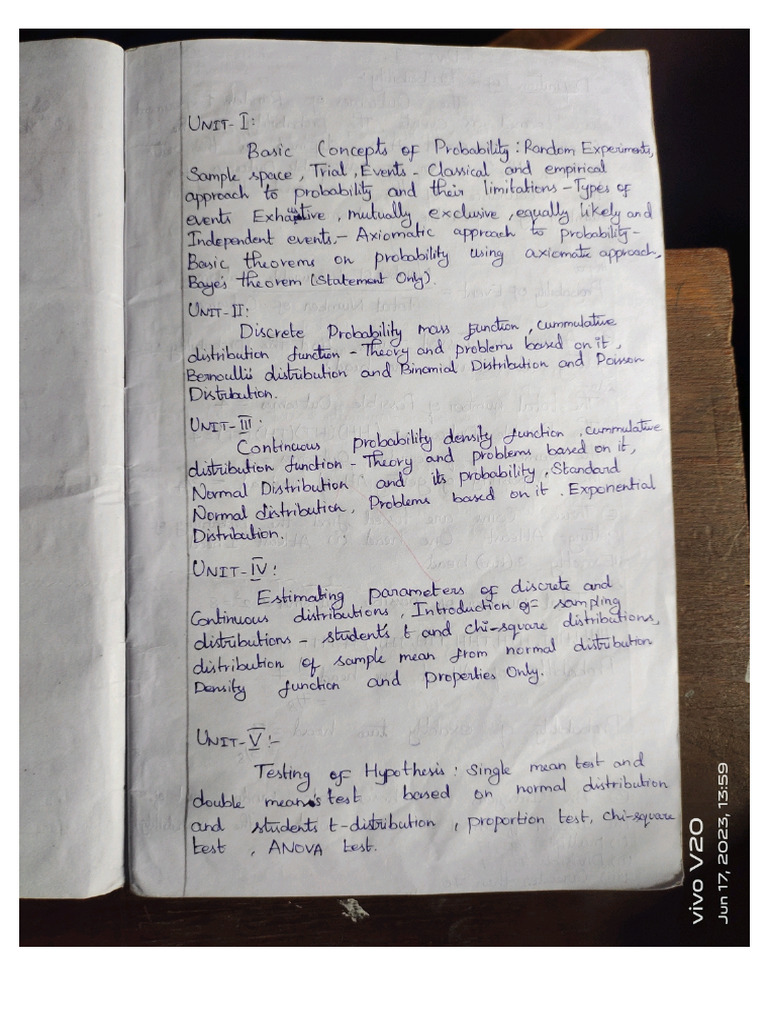 UNIT-I:
Basic Concepts of Probability: Random Experiments,
Sample space, Trial, Events - Classical and empirical
approach to probability and their limitations - Types of
events Exhaustive, mutually exclusive, equally likely and
Independent events,- Axiomatic approach to probability -
Basic theorems on probability using axiomatic approach,
Baye's theorem (Statement Only).
UNIT-II:
Discrete Probability mass function, cummulative
distribution function - Theory and problems based on it,
Bernoullis distribution and Binomial Distribution and Poisson
Distribution.
UNIT-III:
Continuous probability density function, cummulative
distribution function - Theory and problems based on it,
Normal Distribution and its probability, Standard
Normal distribution, Problems based on it. Exponential
Distribution.
UNIT-IV:
Estimating parameters of discrete and
Continuous distributions, Introduction of sampling
distributions - student's t and chi-square distributions,
distribution of sample mean from normal distribution
Density function and properties Only.
UNIT-V:-
Testing of Hypothesis: Single mean test and
double mean's test based on normal distribution
and students t-distribution, proportion test, chi-square
test, ANOVA test.
vivo V20
Jun 17, 2023, 13:59